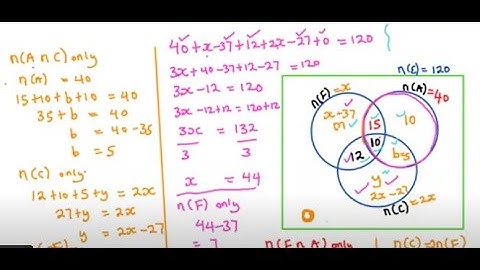 n(A ∩ C) only
n(A) = 40
15+10+b+10 = 40
35+b = 40
b = 40-35
b = 5
n(C) only
12+10+5+y = 2x
27+y = 2x
y = 2x-27
40+x-37+12+2x-27+0 = 120
3x+40-37+12-27 = 120
3x-12 = 120
3x-12+12 = 120+12
3x = 132
3 3
x = 44
n(F) only
44-37
= 7
n(ξ) = 120
n(F)=x
n(A)=40
x-37
m
15
10
10
12
b=5
y
2x-27
n(C)=2x
0
n(F ∩ A)
n(C)=2n(F)